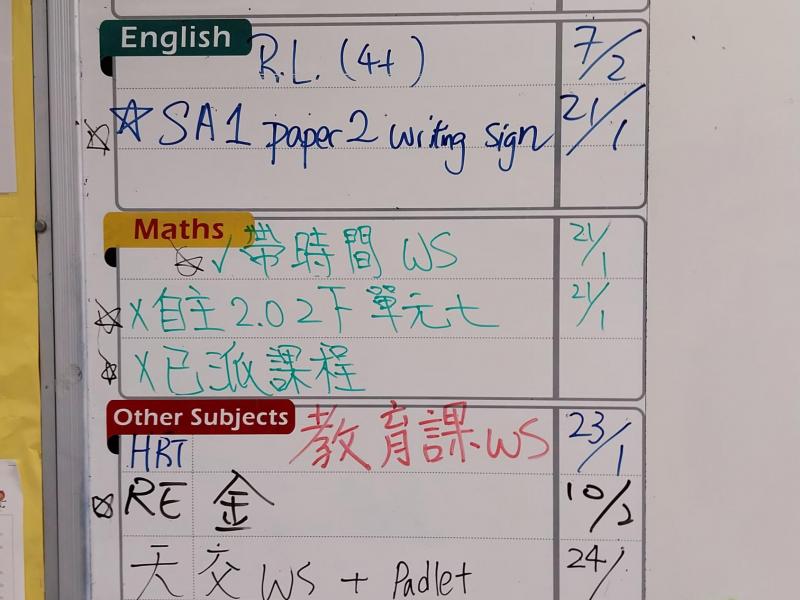 English
R.L. (4+) 7/2
☆ SA1 paper 2 writing sign 21/1
Maths
✓ 帶時間 WS 21/1
X 自主2.0 2下 單元七 21/1
X 已派課程
Other Subjects
HRT 教育課 WS 23/1
RE 金 10/2
天 交 WS + Padlet 24/